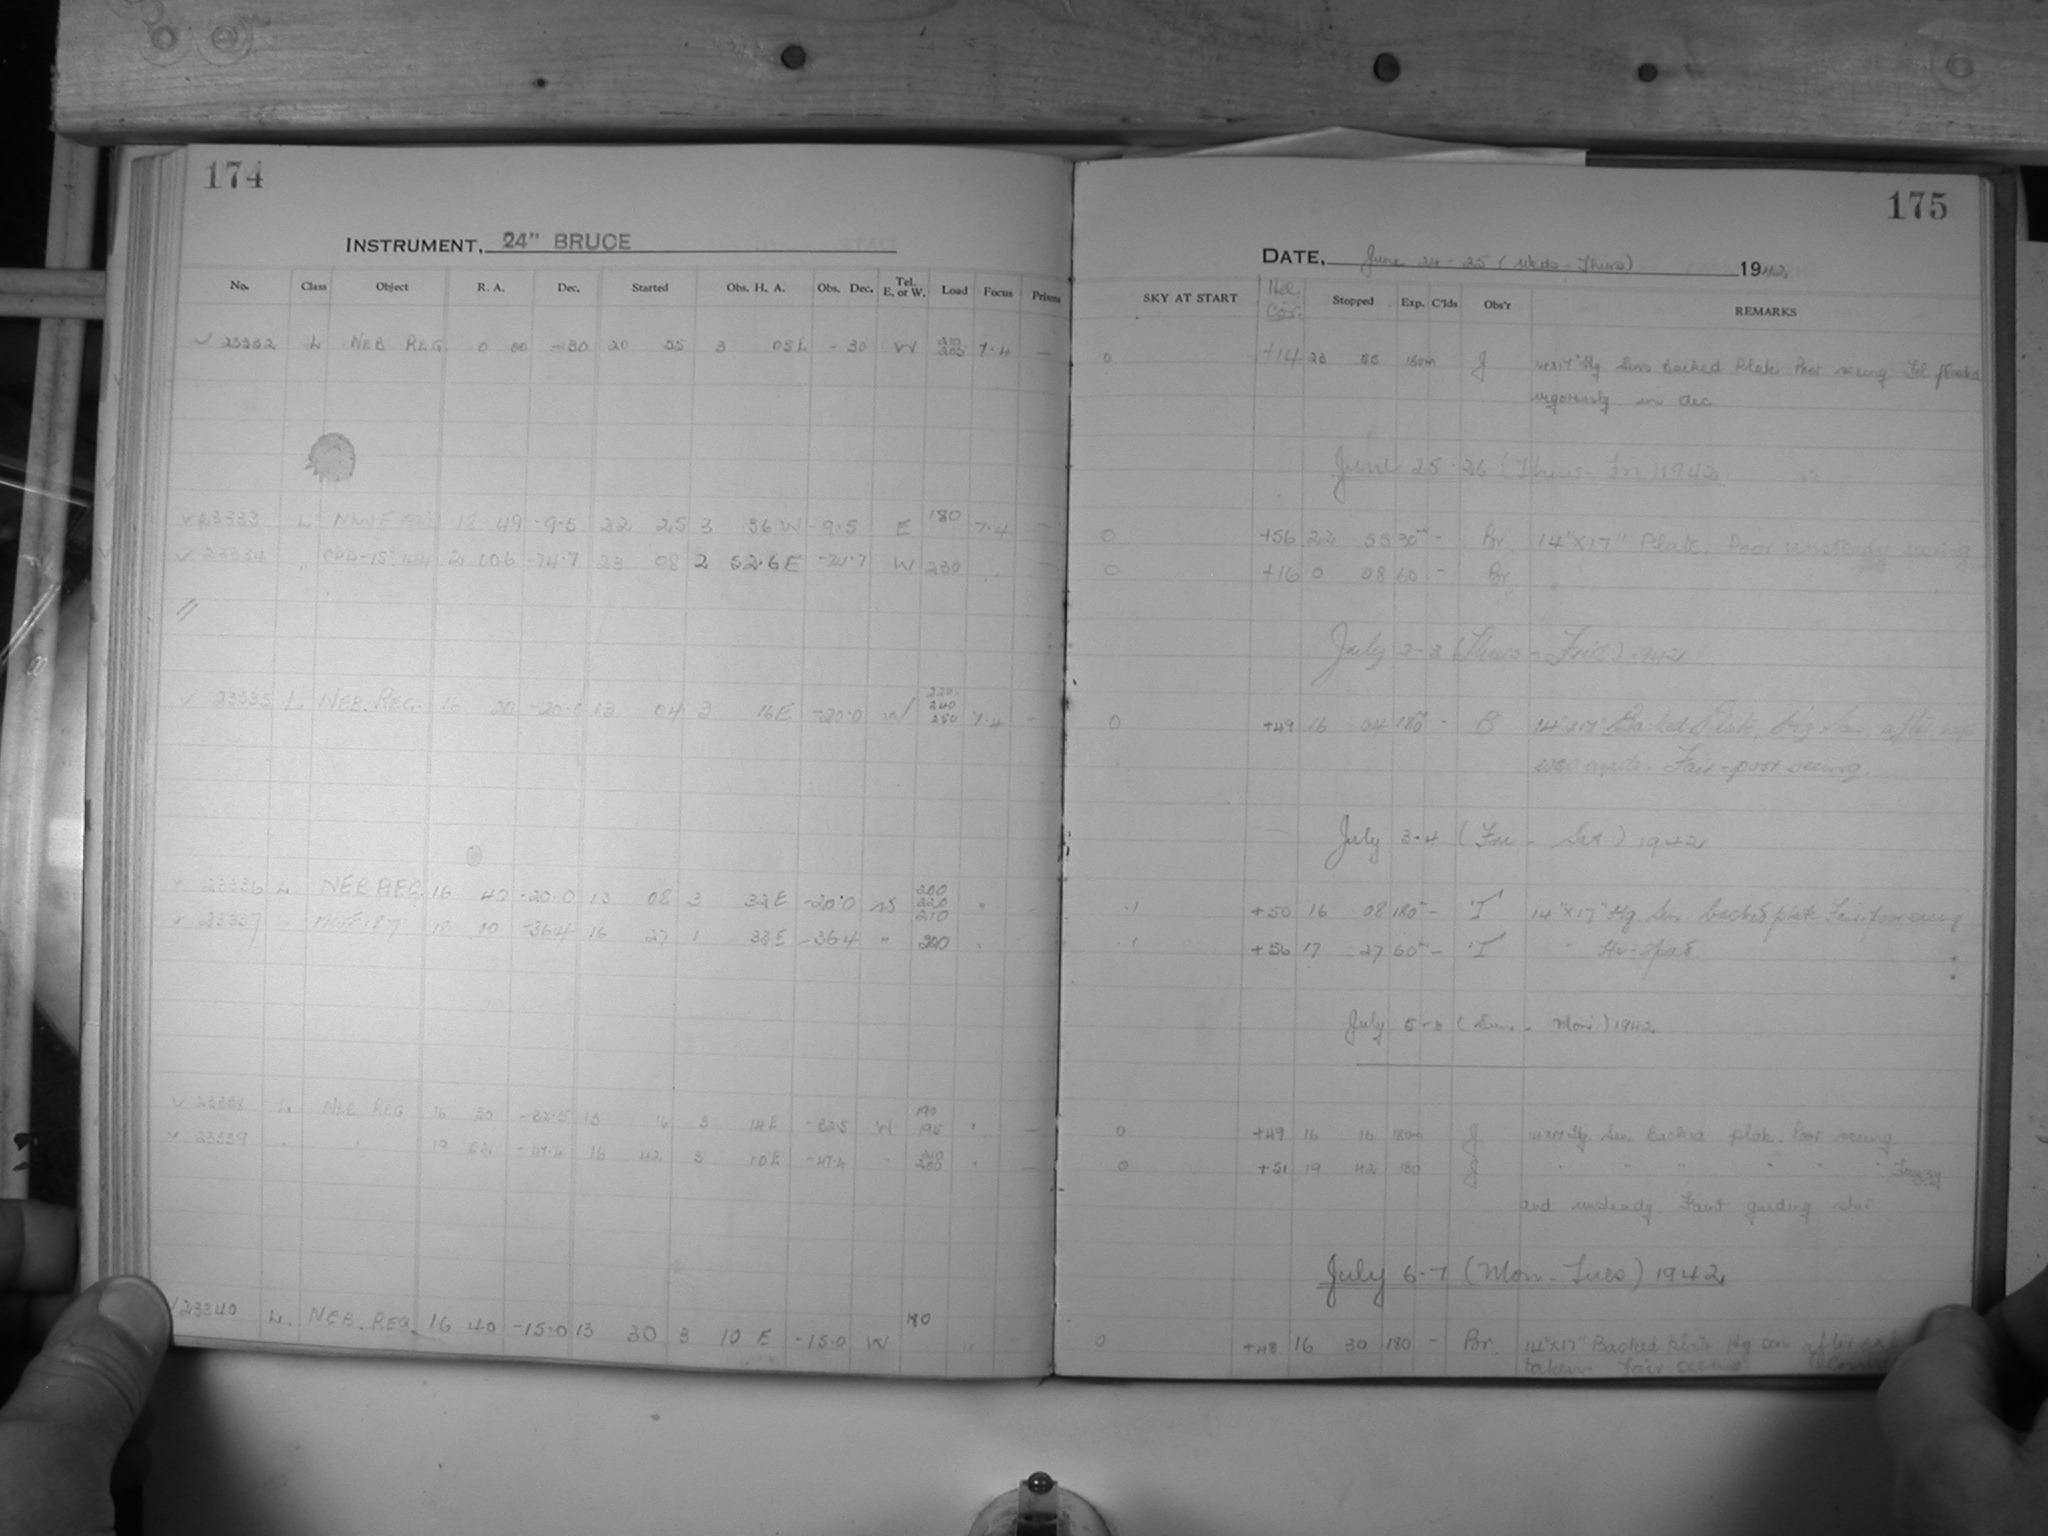 174
INSTRUMENT, 24" BRUCE
No. Class Object R. A. Dec. Started Obs. H. A. Obs. Dec. Tel. E. or W. Load Focus Prisms
V 23332 L NEB REG 0 00 -30 20 55 3 05E -30 W 7.4 —
V 23333 L 18 49 -9.5 22 25 3 56 W -9.5 E 180 7.4 —
V 23334 " -74.7 23 08 2 52.6 E -74.7 W 230
//
V 23335 L NEB. REG. 16 20 -20.0 13 04 3 16E -20.0 W 220 240 250 7.4 -
V 23336 L NEB REG. 16 40 -20.0 13 08 3 32E -20.0 200 220 210 "
V 23337 " 18 10 -36.4 16 27 1 33E -36.4 " 200
V 23338 L NEB REG 16 30 -32.5 13 16 3 14E -32.5 W 190 195 " —
V 23339 " " 19 -47.4 16 42 3 10E -47.4 " —
V 23340 L. NEB. REG. 16 40 -15.0 13 30 3 10 E -15.0 W 180
175
DATE, June 24-25 (Weds-Thurs) 1942
SKY AT START Hel. Cor. Stopped Exp. C'lds Obs'r REMARKS
0 +14 23 55 180m J 14x17" Hg Sens Backed Plate Poor seeing Tel
vigorously in dec
June 25-26 (Thurs-Fri) 1942
0 +56 22 55 30m - Br. 14"x17" Plate. Poor unsteady seeing
0 +16 0 08 60 - Br "
July 2-3 (Thurs-Frid) 1942
0 +49 16 04 180m - B 14"x17" Backed Plate, Hg Sen. after exp
was made. Fair-poor seeing.
July 3-4 (Fri - Sat) 1942
.1 +50 16 08 180m - T 14"x17" Hg Sen. backed plate Fair poor seeing
.1 +56 17 27 60m - T "
July 5-6 (Sun - Mon) 1942
0 +49 16 16 180m J 14x17 Hg Sen Backed plate. Poor seeing
0 +51 19 42 180 J " " " " " "
and unsteady Faint guiding star
July 6-7 (Mon-Tues) 1942
0 +48 16 30 180 - Br. 14"x17" Backed plate Hg sen after
taken Fair seeing